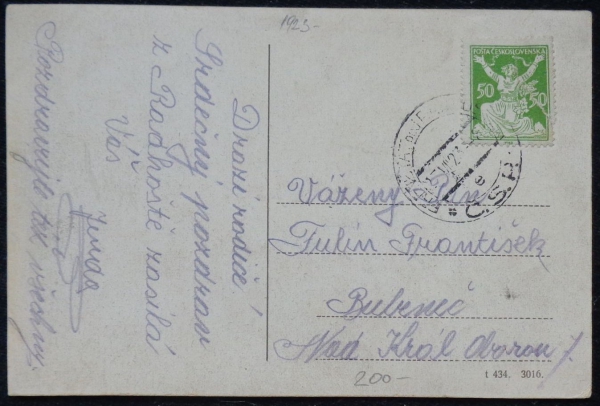 1923-
Drazí rodiče!
Srdečný pozdrav
z Radhoště zasílá
Váš
Jenda
Pozdravujte tek všechny.
POŠTA ČESKOSLOVENSKÁ
50 50
Č.S.R.
e
Vážený Pán
Tulin František
Bubeneč
Nad Král oborou /
200-
t 434. 3016.